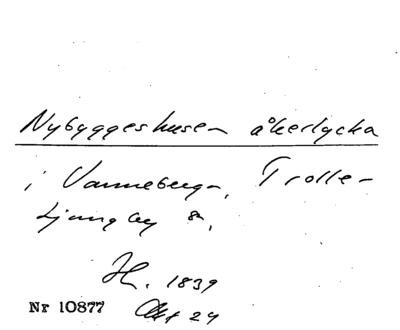 Nybyggeshusen åkerlycka
i Vanneberga, Trolle-
Ljungby sn,
H. 1839
Nr 10877 Akt 24